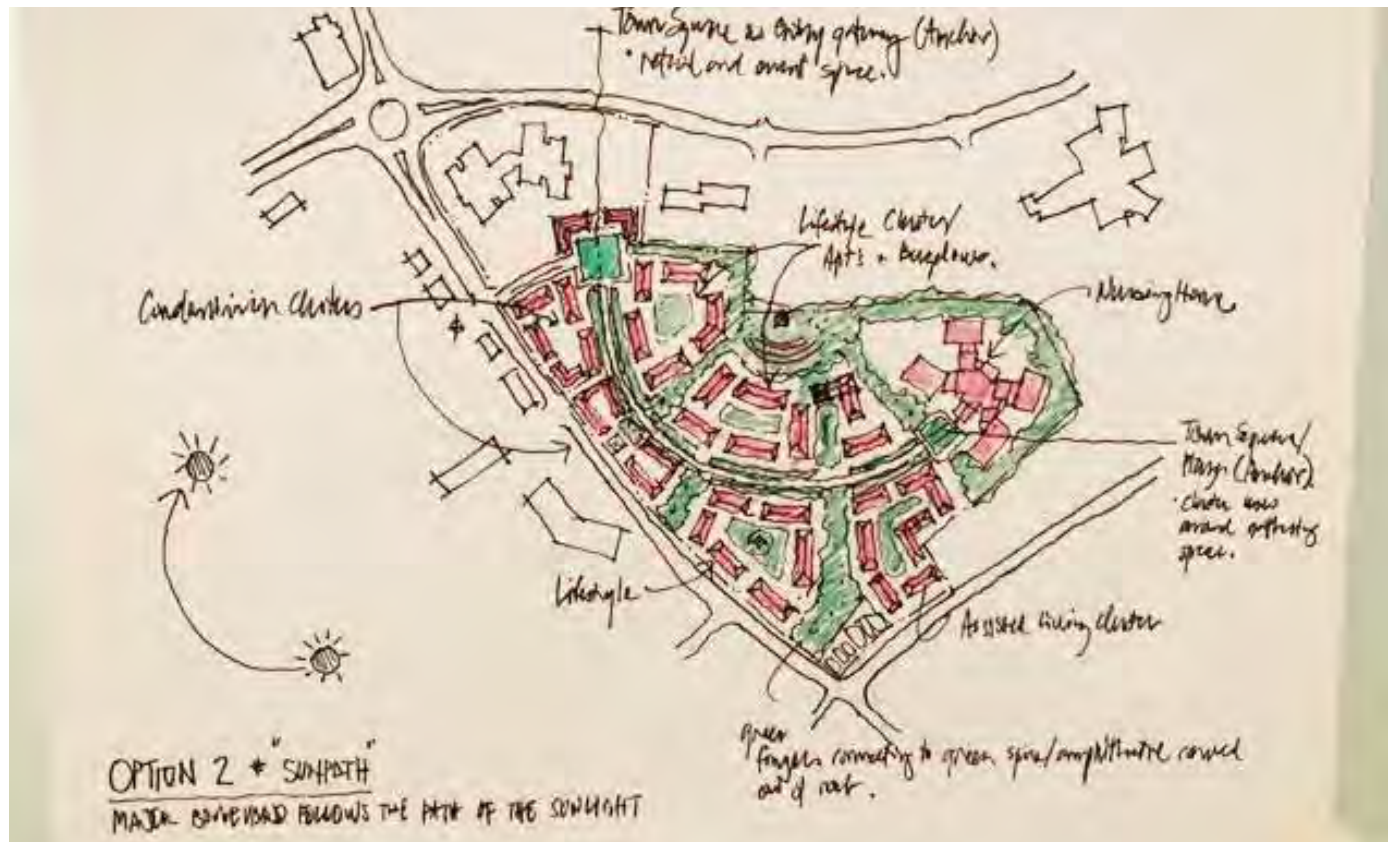 Town Square as Entry gateway (Anchor)
• retail and event space.
Lifestyle Cluster/
Apts + Bungalows.
Nursing Home
Condominium Clusters
Town Square/
(Anchor)
• cluster uses
around gathering
space.
Lifestyle
Assisted Living Cluster
green
fingers connecting to green spine/amphitheatre carved
out of rock.
OPTION 2 * "SUNPATH"
MAJOR BOULEVARD FOLLOWS THE PATH OF THE SUNLIGHT